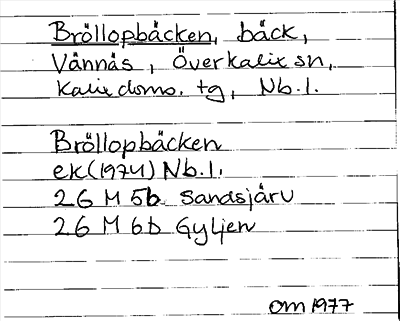 Bröllopbäcken, bäck,
Vännäs, Överkalix sn,
Kalix doms. tg, Nb.l.
Bröllopbäcken
ek(1974) Nb.l.
26 M 5b Sandsjärv
26 M 6b Gyljen
om 1977